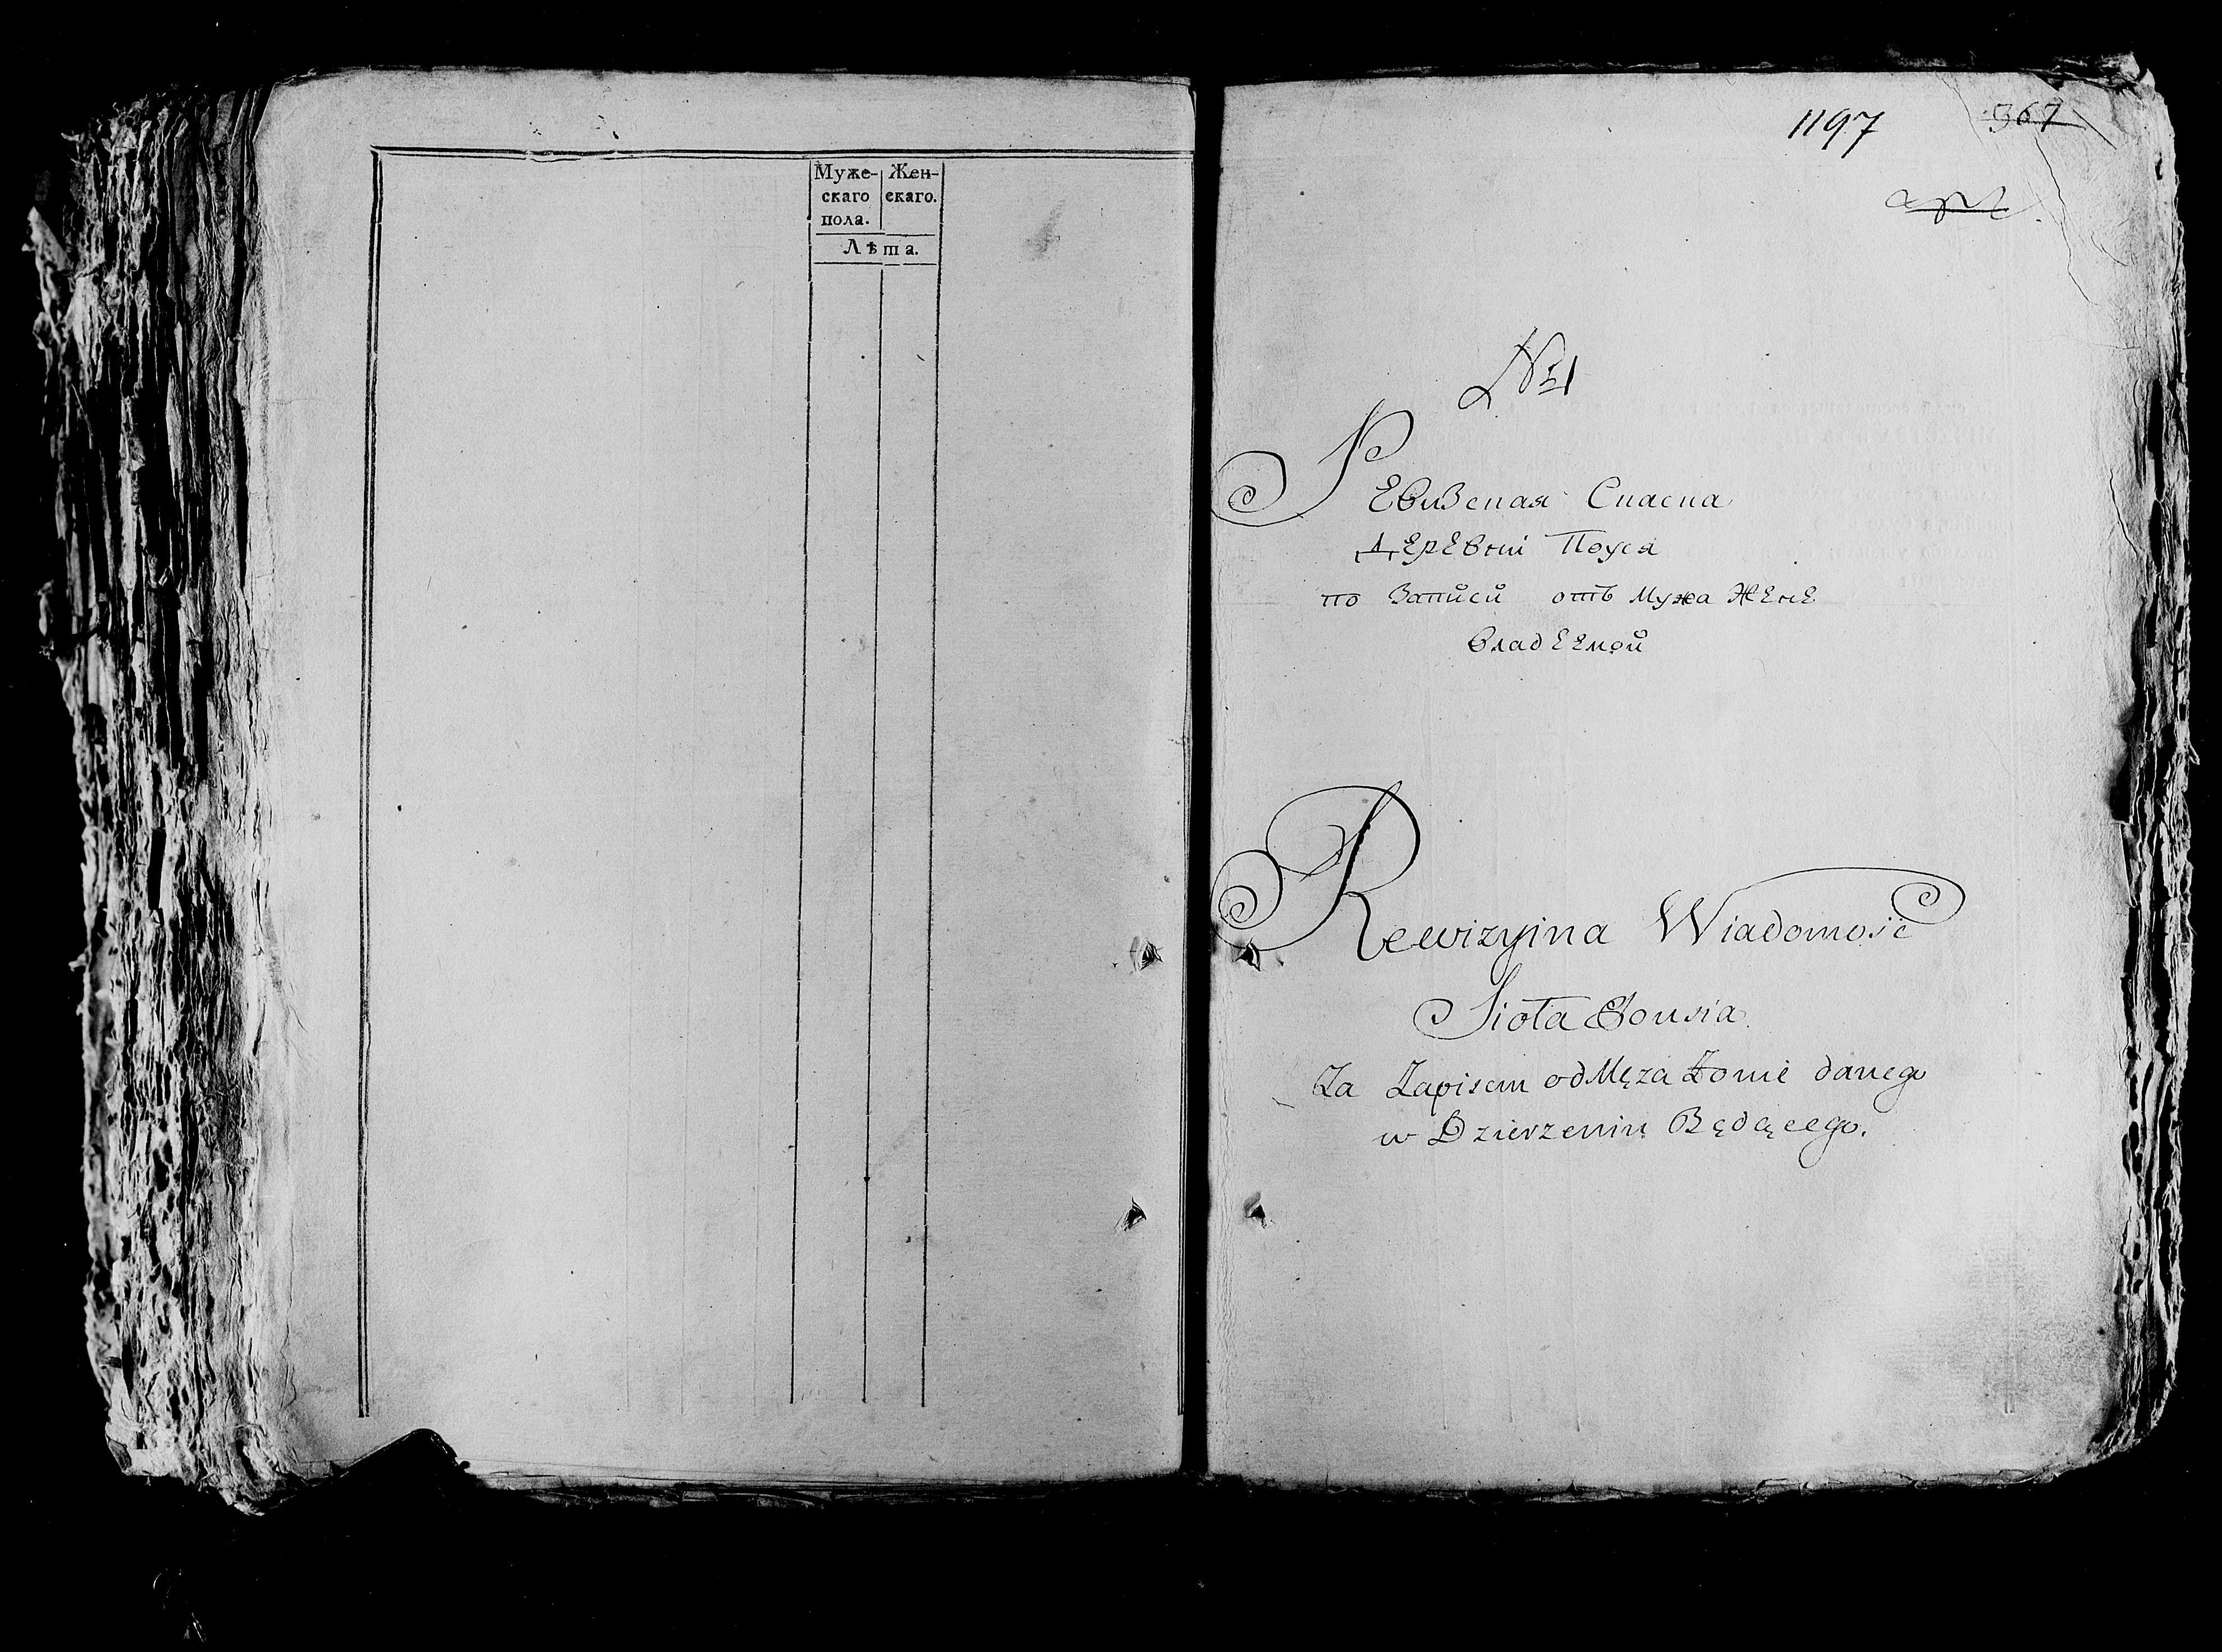 Муже- Жен-
скаго скаго.
пола.
Лѣта.
1197 367
№ 1
РЕвизская Сказка
ДЕрЕвни Поуся
по Записи отъ Мужа ЖЕнЕ
владЕЕмой
Rewizyina Wiadomość
Sioła Pousia
Za Zapisem od Męza Zonie danego
w Dzierzeniu Będącego.